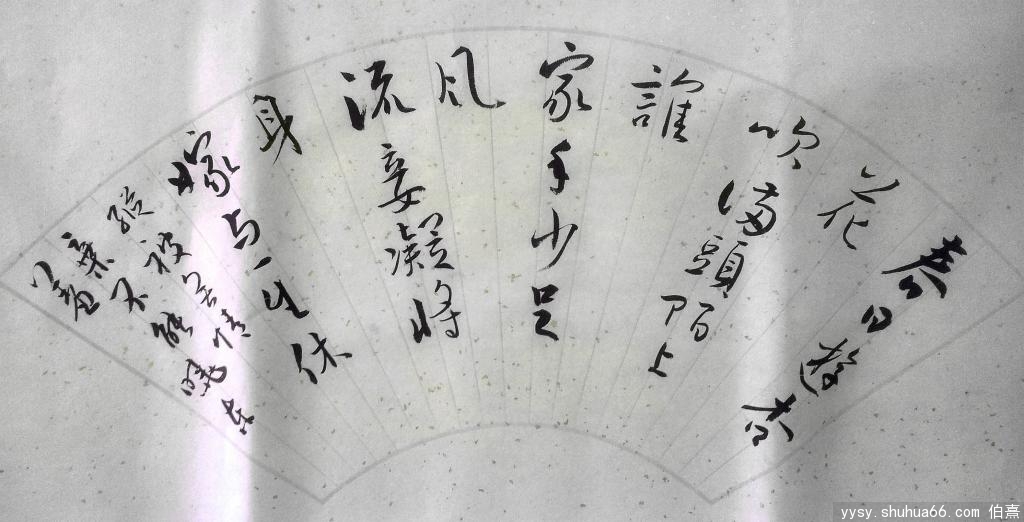 春日遊杏
花
吹滿頭陌上
誰
家年少足
风
流妾凝将
身
嫁与一生休
縱被無情
棄不能曉
羞
yysy.shuhua66.com 伯熹